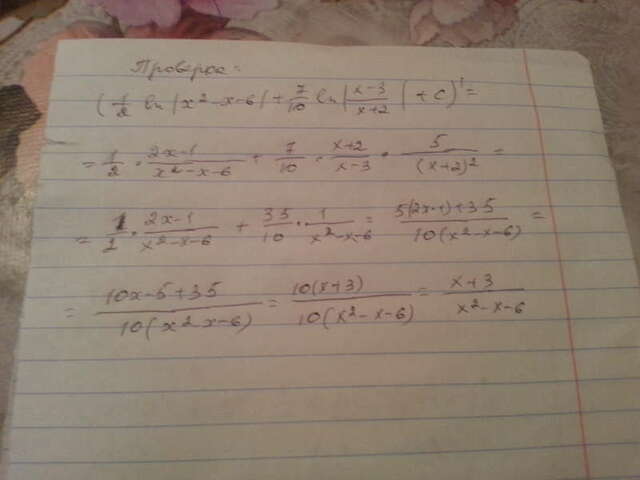 Проверка:
(1/2 ln|x²-x-6| + 7/10 ln|x-3/x+2| + C)' =
= 1/2 · 2x-1/x²-x-6 + 7/10 · x+2/x-3 · 5/(x+2)² =
= 1/2 · 2x-1/x²-x-6 + 35/10 · 1/x²-x-6 = 5(2x-1)+35/10(x²-x-6) =
= 10x-5+35/10(x²-x-6) = 10(x+3)/10(x²-x-6) = x+3/x²-x-6